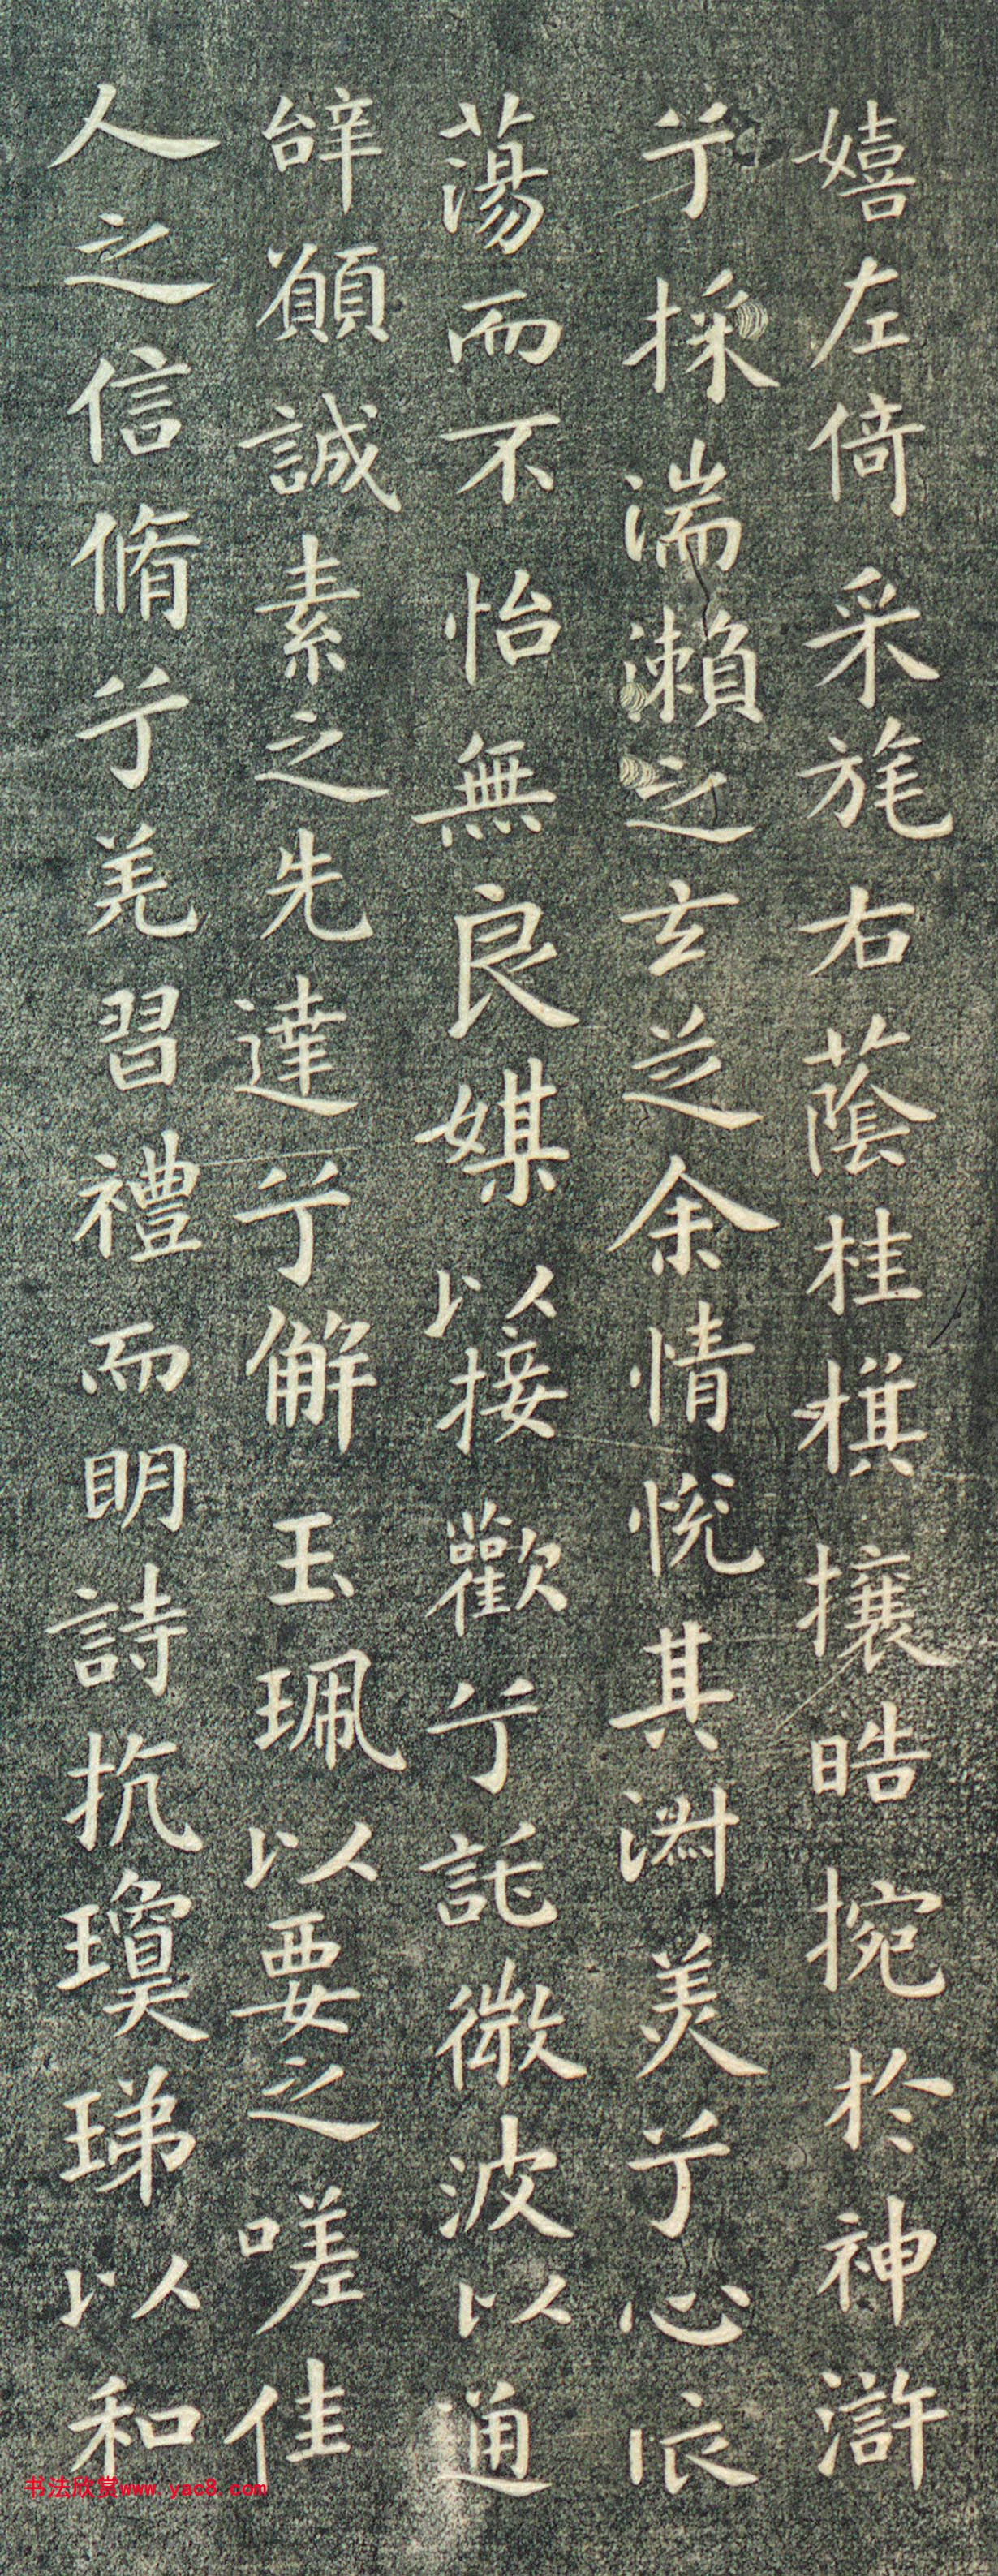 嬉左倚采旄右蔭桂棋攘皓捥於神滸
兮採湍瀨之玄芝余情悅其淵美兮心依
蕩而不怡無良媒以接歡兮託微波以通
辞願誠素之先達兮解玉珮以要之嗟佳
人之信脩兮羌習禮而明詩抗瓊珶以和
书法欣赏www.yac8.com